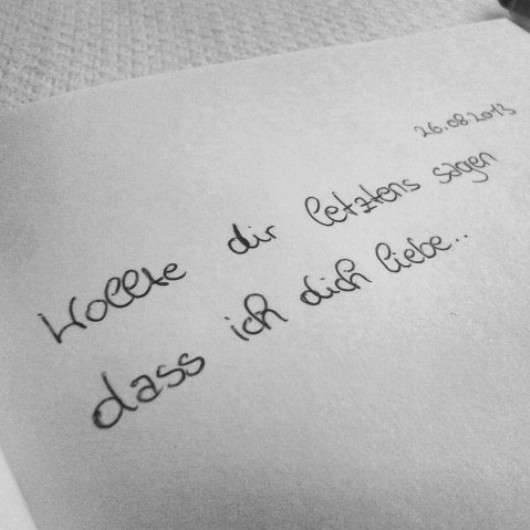 26.08.2013
Wollte dir letztens sagen
dass ich dich liebe..